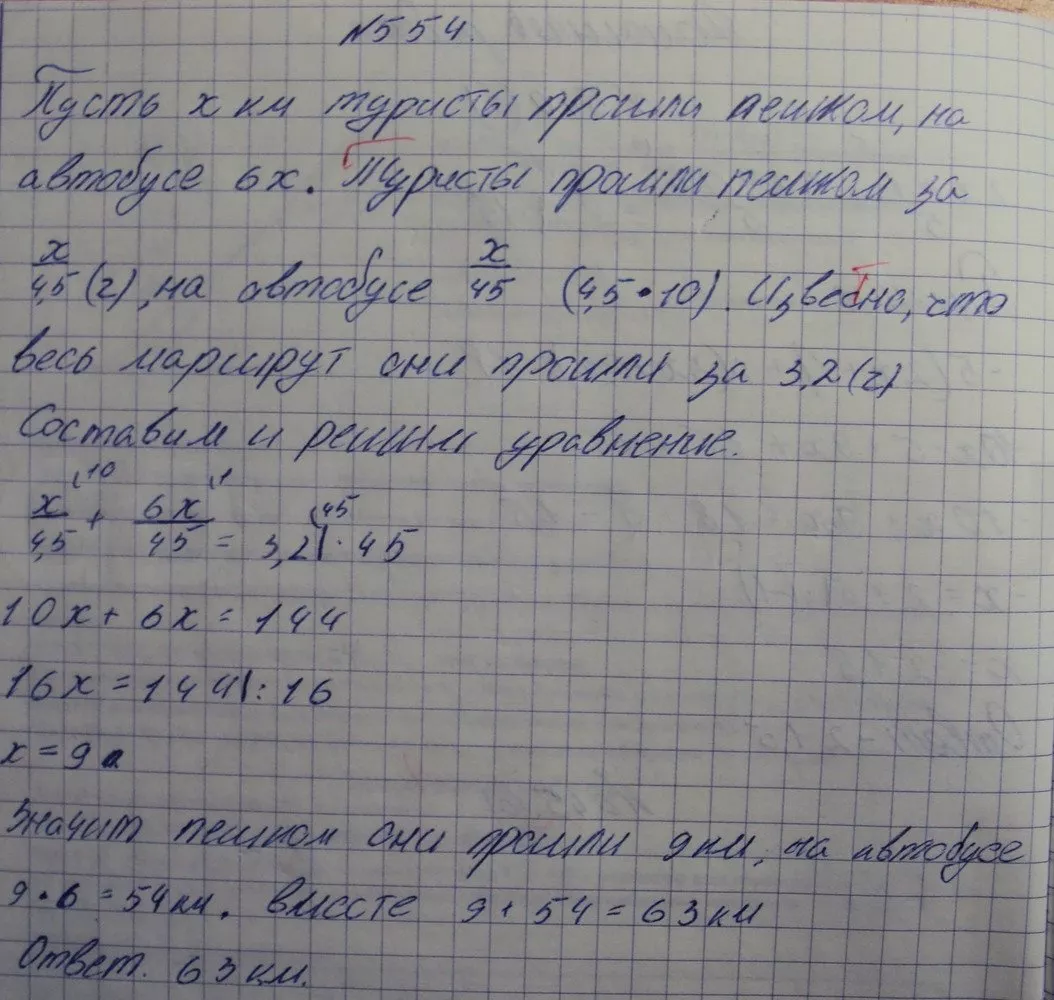 №554.
Пусть x км туристы прошли пешком, на
автобусе 6x. Туристы прошли пешком за
x/4,5 (г), на автобусе x/45 (4,5•10). Извесно, что
весь маршрут они прошли за 3,2 (г)
Составим и решим уравнение.
x/4,5 (10 + 6x/45 (1 = 3,2 (45 |· 45
10x + 6x = 144
16x = 144 |: 16
x = 9
Значит пешком они прошли 9 км, на автобусе
9•6 = 54 км. вместе 9 + 54 = 63 км
Ответ. 63 км.